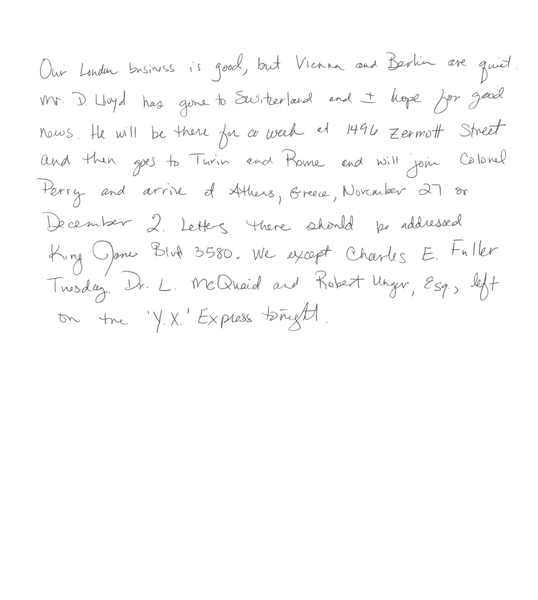 Our London business is good, but Vienna and Berlin are quiet.
Mr. D Lloyd has gone to Switzerland and I hope for good
news. He will be there for a week at 1496 Zermott Street
and then goes to Turin and Rome and will join Colonel
Perry and arrive at Athens, Greece, November 27 or
December 2. Letters there should be addressed
King James Blvd 3580. We except Charles E. Fuller
Tuesday. Dr. L. McQuaid and Robert Unger, Esq., left
on the 'Y.X.' Express tonight.